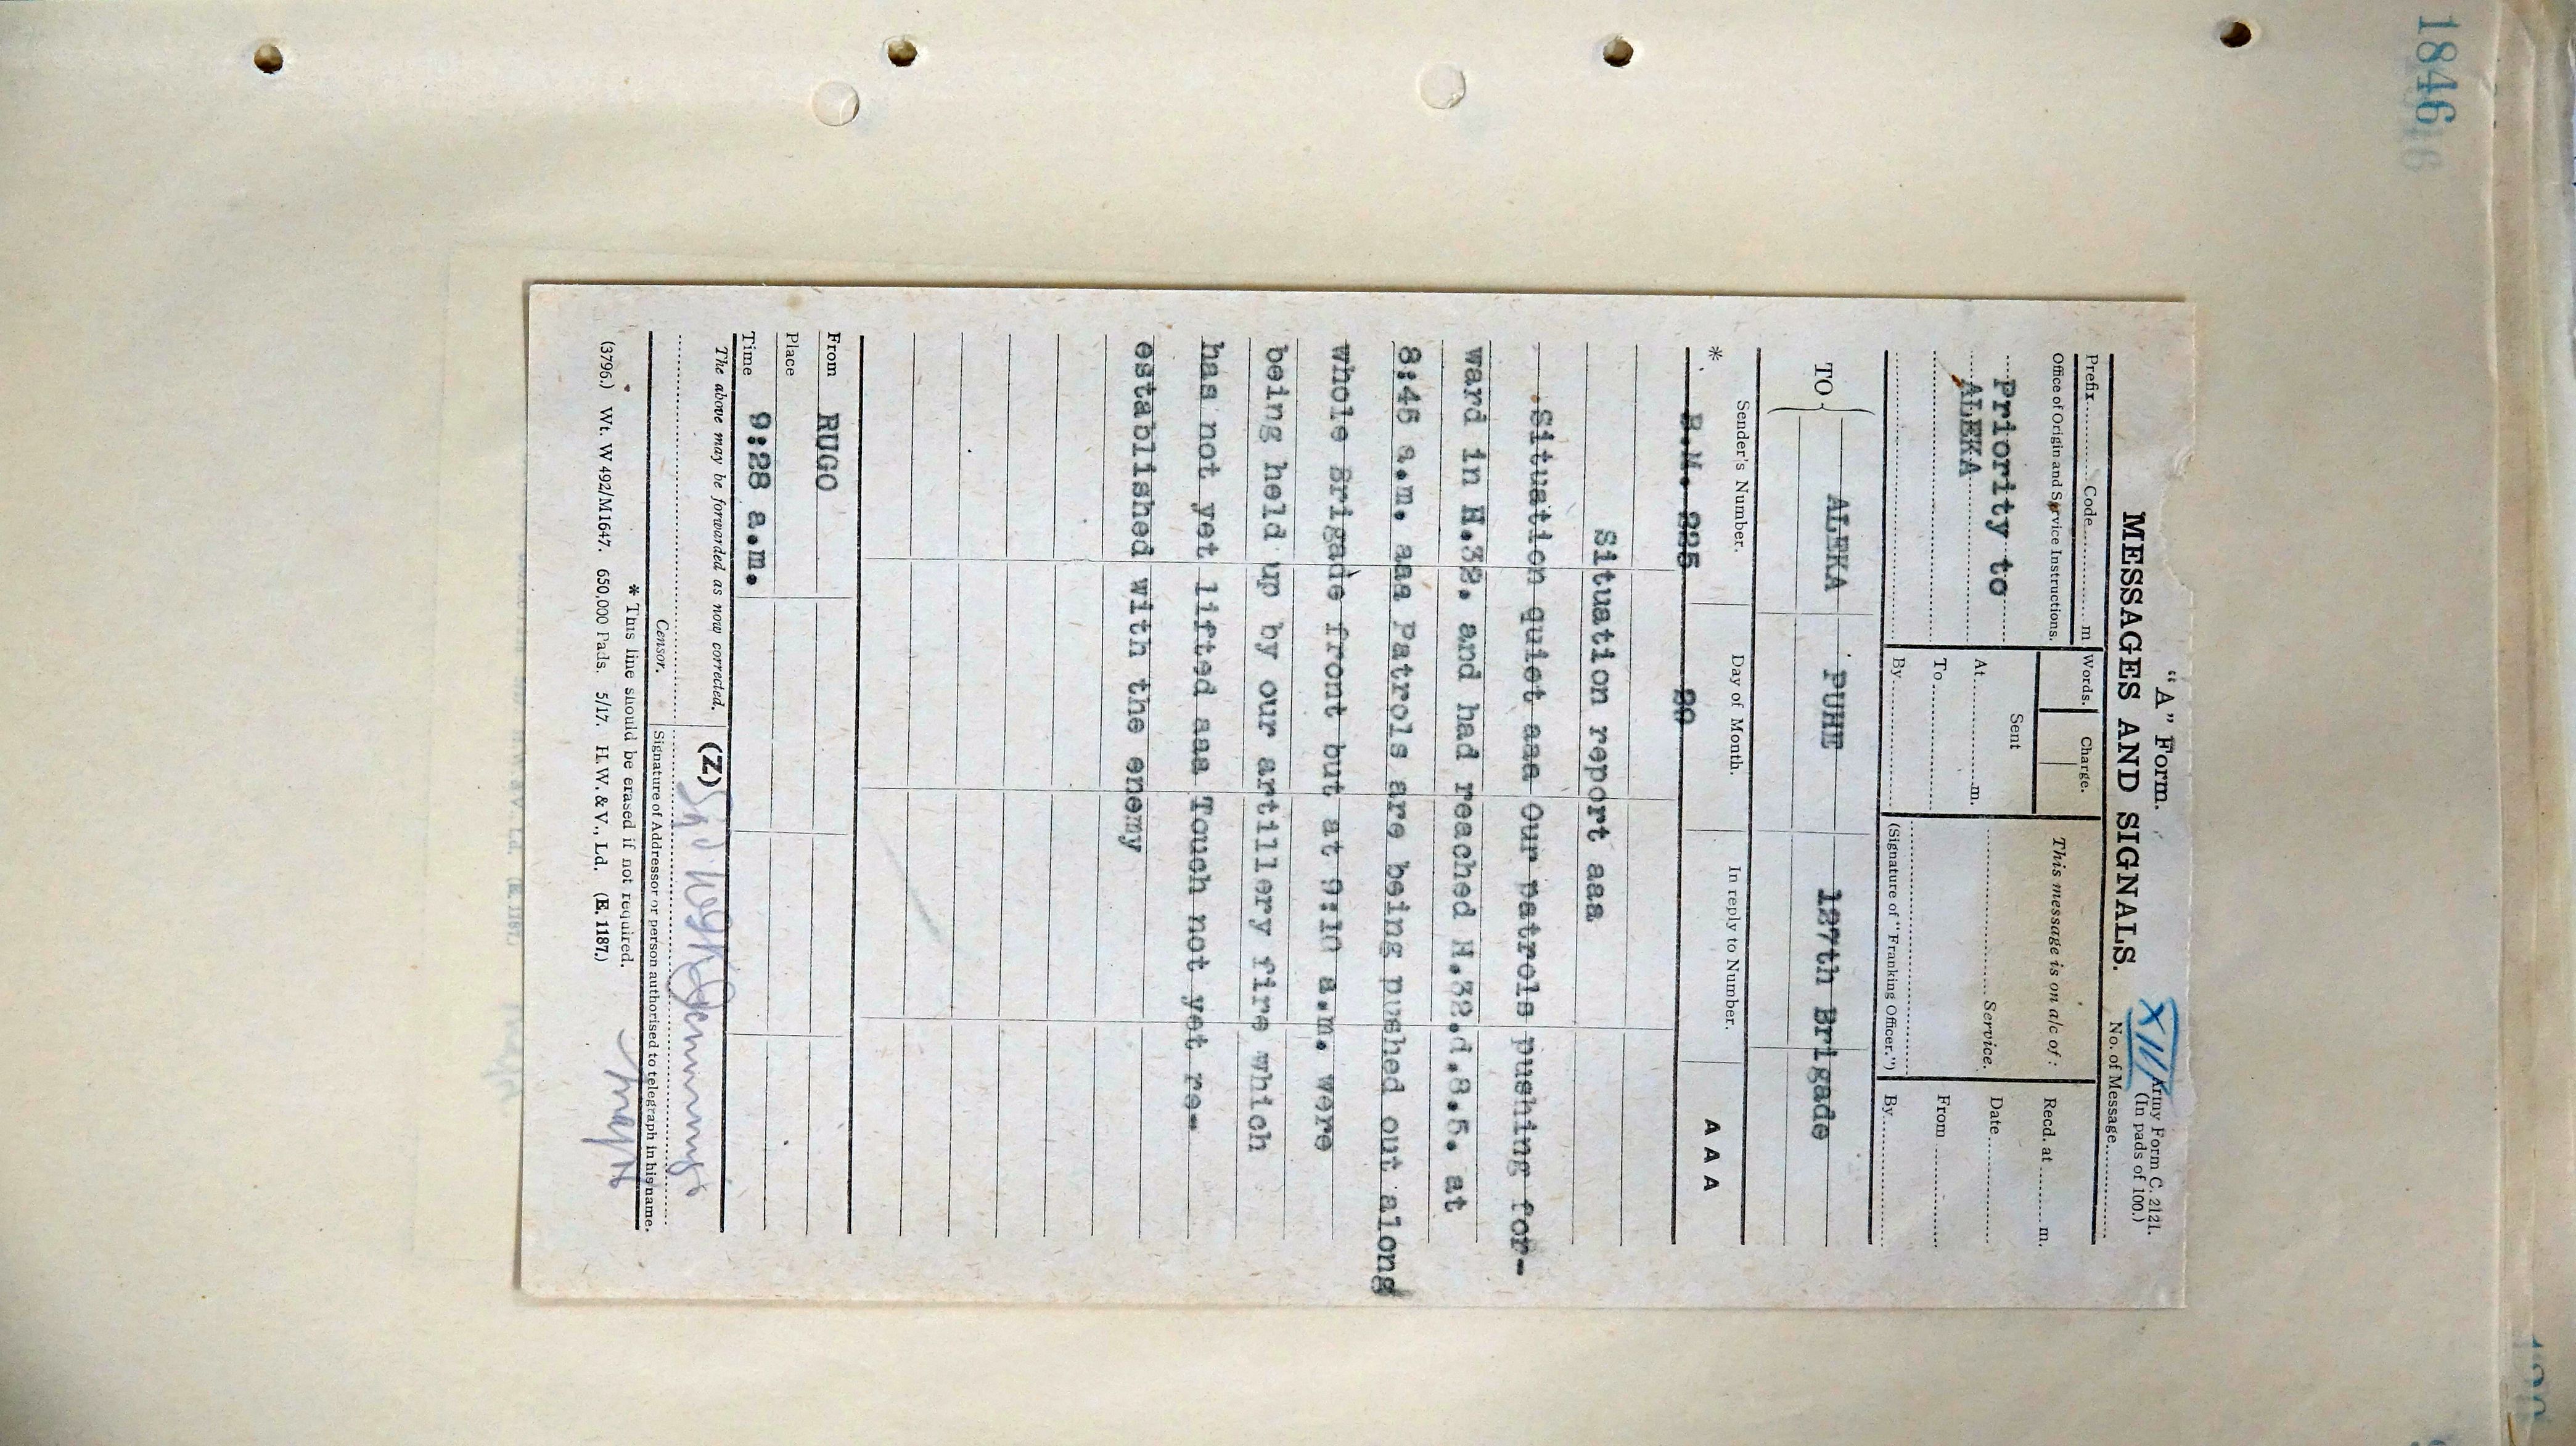 1846
"A" Form.
MESSAGES AND SIGNALS.
XII
Army Form C. 2121.
(In pads of 100.)
No. of Message
Prefix Code m
Words.
Charge.
This message is on a/c of :
Recd. at m.
Office of Origin and Service Instructions.
Priority to
ALEKA
Sent
At m.
To
By
Service.
(Signature of "Franking Officer.")
Date
From
By
TO
ALEKA PUHE 127th Brigade
* Sender's Number. Day of Month. In reply to Number. A A A
B.M. 225 20
Situation report aaa
Situation quiet aaa Our patrols pushing for-
ward in H.32. and had reached H.32.d.8.5. at
8:45 a.m. aaa Patrols are being pushed out along
whole Brigade front but at 9:10 a.m. were
being held up by our artillery fire which
has not yet lifted aaa Touch not yet re-
established with the enemy
From RUGO
Place
Time 9:28 a.m.
The above may be forwarded as now corrected. (Z)
Censor. Signature of Addressor or person authorised to telegraph in his name.
* This line should be erased if not required.
(3796.) Wt. W 492/M1647. 650,000 Pads. 5/17. H.W. & V., Ld. (E. 1187.)